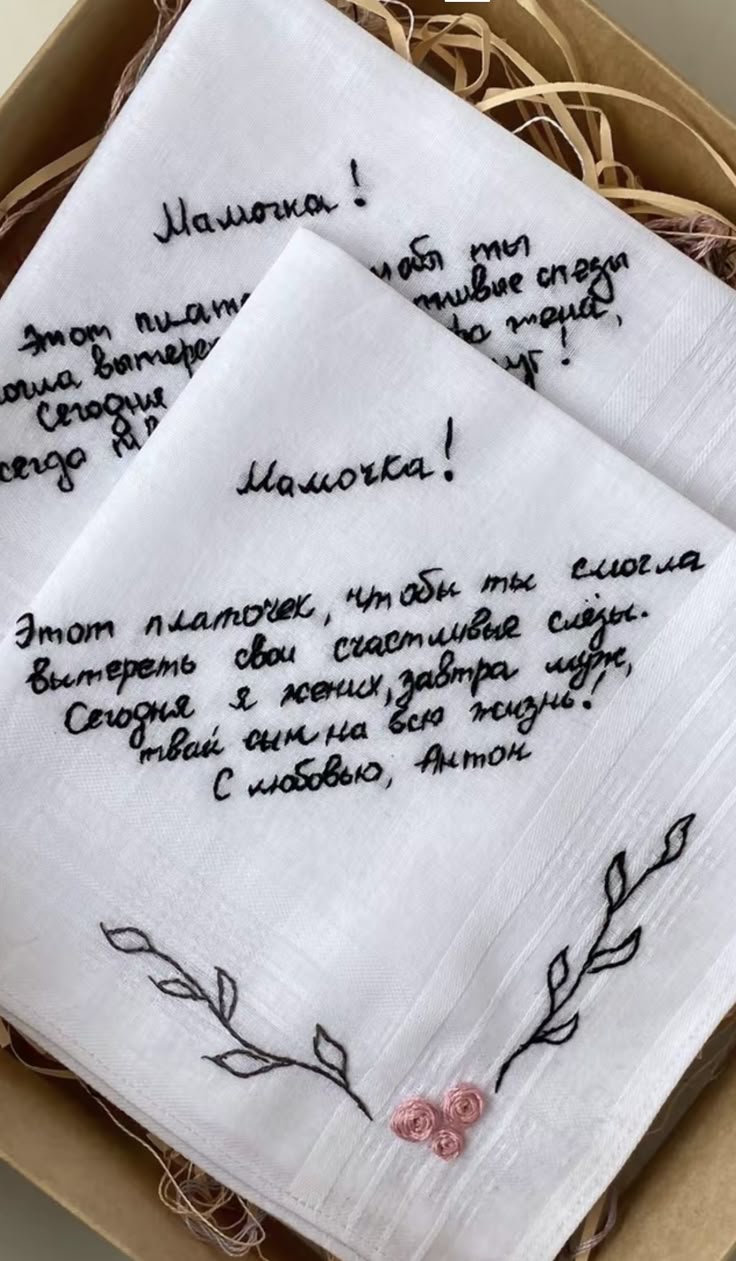 Мамочка!
Этот ты
вытере слезы
Сегодня жена,
всегда
Мамочка!
Этот платочек, чтобы ты смогла
вытереть свои счастливые слёзы.
Сегодня я жених, завтра муж,
твой сын на всю жизнь!
С любовью, Антон